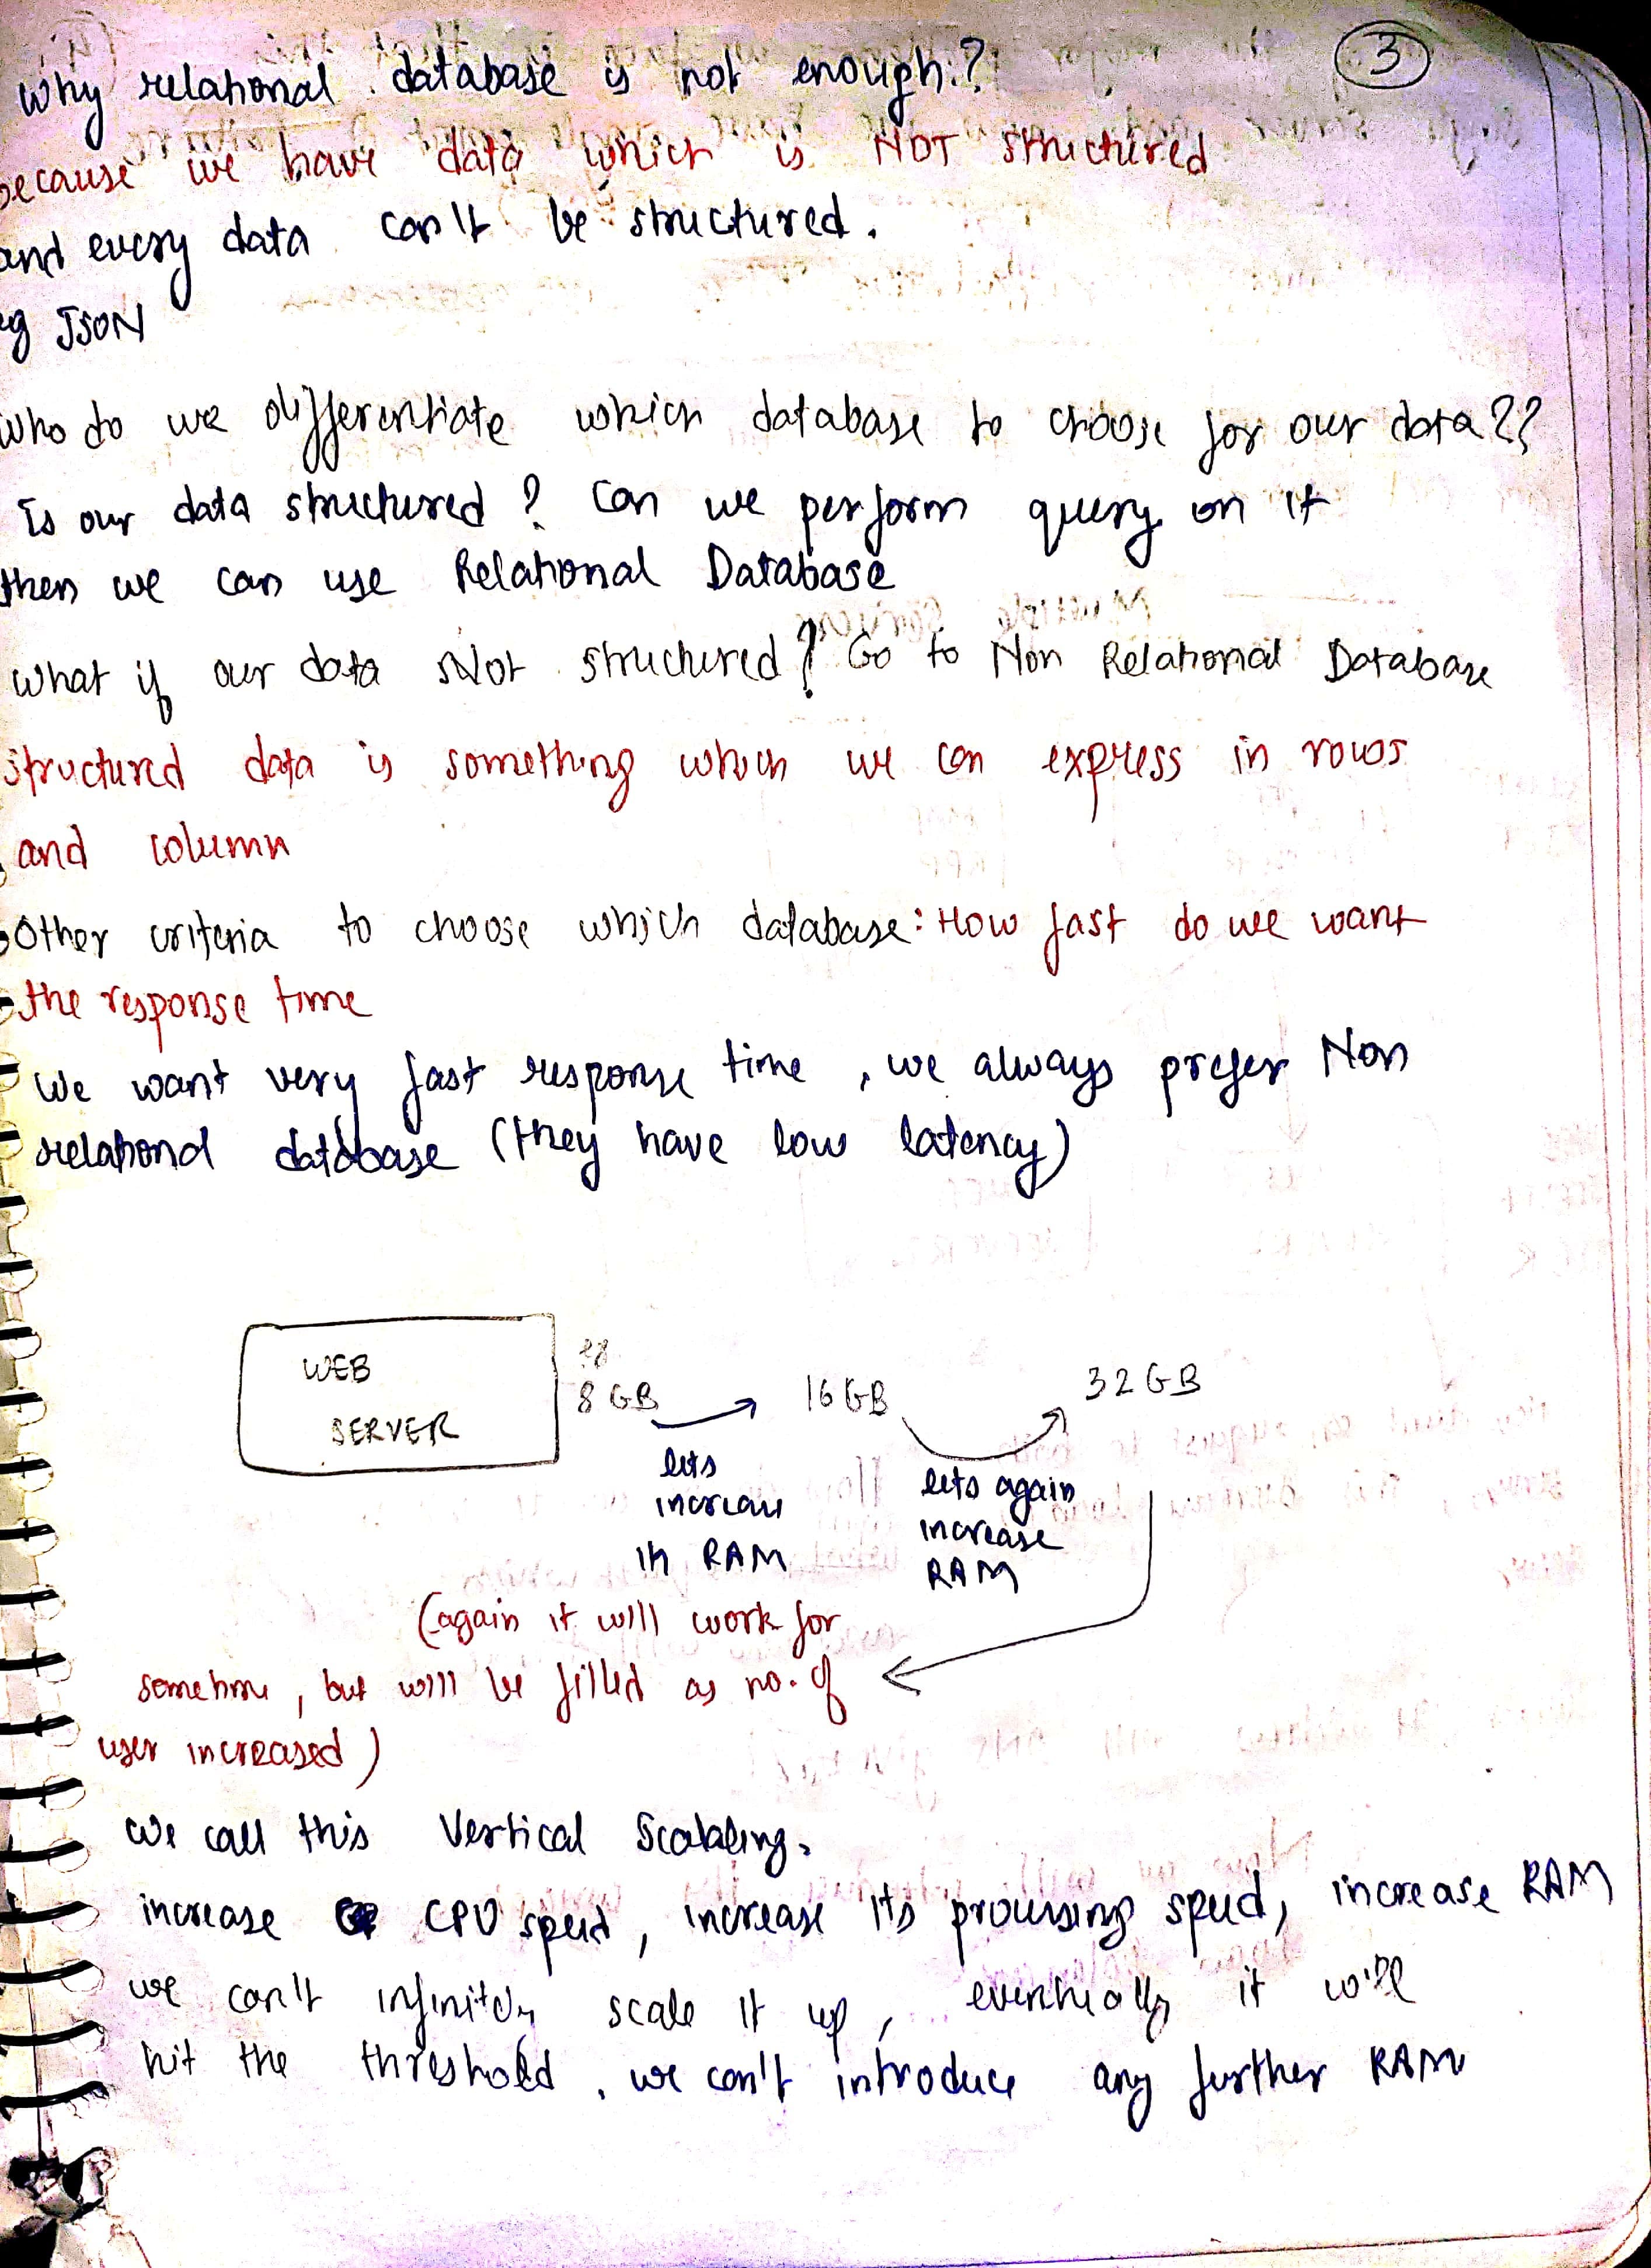 3
Why relational database is not enough?
because we have data which is NOT structured
and every data can't be structured.
eg JSON
Who do we differentiate which database to choose for our data??
Is our data structured? Can we perform query on it
then we can use Relational Database
What if our data Not structured? Go to Non Relational Database
structured data is something which we can express in rows
and column
Other criteria to choose which database: How fast do we want
the response time
We want very fast response time, we always prefer Non
relational database (they have low latency)
WEB
SERVER
8 GB
16 GB
32 GB
lets
increase
in RAM
lets again
increase
RAM
(again it will work for
sometime, but will be filled as no. of
user increased)
We call this Vertical Scalaling.
increase CPU speed, increase its processing speed, increase RAM
we can't infinitely scale it up, eventually it will
hit the threshold, we can't introduce any further RAM